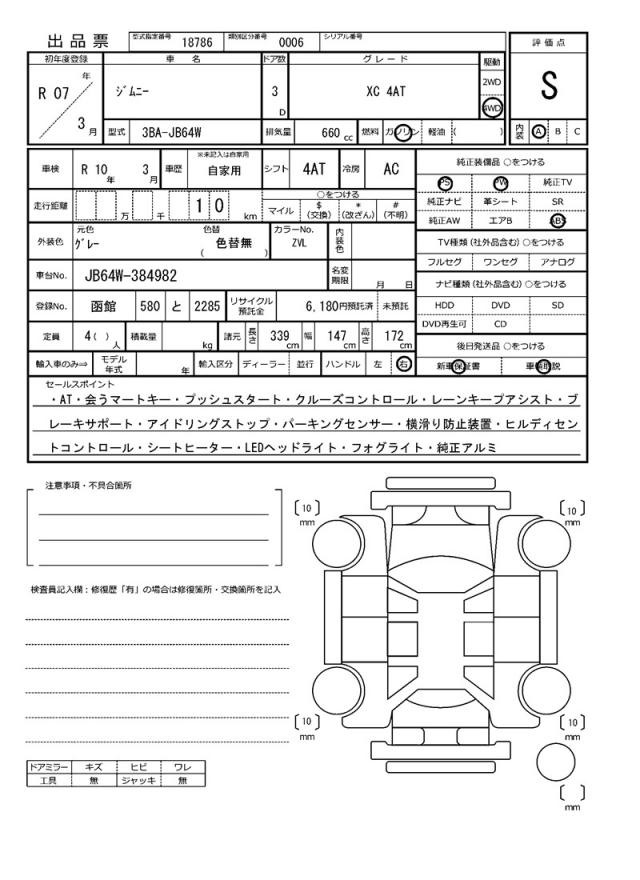 出品票 型式指定番号 18786 類別区分番号 0006 シリアル番号
初年度登録 車名 ドア数 グレード 駆動 評価点
R 07 年 3 月 ジムニー 3 D XC 4AT 2WD 4WD S
型式 3BA-JB64W 排気量 660 cc 燃料 ガソリン 軽油 ( ) 内装 A B C
車検 R 10 年 3 月 車歴 ※未記入は自家用 自家用 シフト 4AT 冷房 AC 純正装備品 ○をつける
PS PW 純正TV
走行距離 万 千 1 0 km ○をつける
マイル $ (交換) * (改ざん) # (不明)
純正ナビ 革シート SR
純正AW エアB ABS
外装色 元色 グレー 色替 色替無 ( ) カラーNo. ZVL 内装色
TV種類 (社外品含む) ○をつける
フルセグ ワンセグ アナログ
車台No. JB64W-384982 名変期限 月 日
ナビ種類 (社外品含む) ○をつける
登録No. 函館 580 と 2285 リサイクル預託金 6,180円預託済 未預託
HDD DVD SD
DVD再生可 CD
定員 4 ( ) 人 積載量 kg 諸元 長さ 339 cm 幅 147 cm 高さ 172 cm
後日発送品 ○をつける
輸入車のみ⇒ モデル年式 年 輸入区分 ディーラー 並行 ハンドル 左 右
新車保証書 車輌取説
セールスポイント
・AT・会うマートキー・プッシュスタート・クルーズコントロール・レーンキープアシスト・ブ
レーキサポート・アイドリングストップ・パーキングセンサー・横滑り防止装置・ヒルディセン
トコントロール・シートヒーター・LEDヘッドライト・フォグライト・純正アルミ
注意事項・不具合箇所
[10] mm [10] mm
検査員記入欄：修復歴「有」の場合は修復箇所・交換箇所を記入
[10] mm [10] mm
ドアミラー キズ ヒビ ワレ
工具 無 ジャッキ 無
[ ] mm